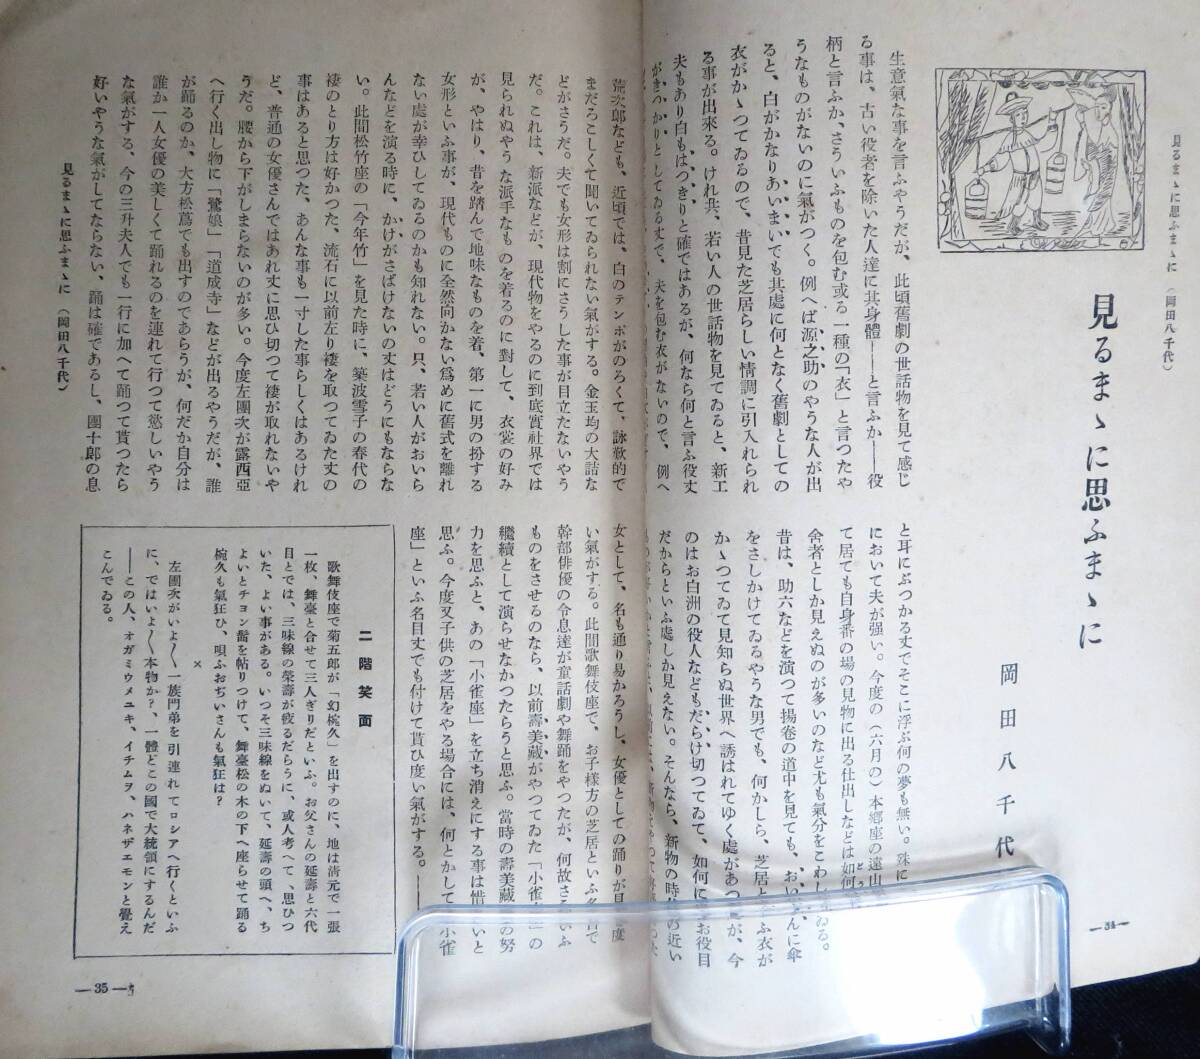 見るまゝに思ふまゝに(岡田八千代)
見るまゝに思ふまゝに
岡田八千代
生意氣な事を言ふやうだが、此頃舊劇の世話物を見て感じ
る事は、古い役者を除いた人達に其身體――と言ふか――役
柄と言ふか、さういふものを包む或る一種の「衣」と言つたや
うなものがないのに氣がつく。例へば源之助のやうな人が出
ると、白がかなりあいまいでも其處に何となく舊劇としての
衣がかゝつてゐるので、昔見た芝居らしい情調に引入れられ
る事が出來る。けれ共、若い人の世話物を見てゐると、新工
夫もあり白もはつきりと確ではあるが、何なら何と言ふ役丈
がきつかりとしてゐる丈で、夫を包む衣がないので、例へ
と耳にぶつかる丈でそこに浮ぶ何の夢も無い。殊に
において夫が强い。今度の(六月の)本鄕座の遠山
て居ても自身番の場の見物に出る仕出しなどは如何
舍者としか見えぬのが多いのなど尤も氣分をこわし ゐる。
昔は、助六などを演つて揚卷の道中を見ても、おい んに傘
をさしかけてゐるやうな男でも、何かしら、芝居と ふ衣が
かゝつてゐて見知らぬ世界へ誘はれてゆく處があつ が、今
のはお白洲の役人などもだらけ切つてゐて、如何に お役目
だからといふ處しか見えない。そんなら、新物の時 の近い
―34―
荒次郞なども、近頃では、白のテンポがのろくて、詠歎的で
まだろこしくて聞いてゐられない氣がする。金玉均の大詰な
どがさうだ。夫でも女形は割にさうした事が目立たないやう
だ。これは、新派などが、現代物をやるのに到底實社界では
見られぬやうな派手なものを着るのに對して、衣裳の好み
が、やはり、昔を踏んで地味なものを着、第一に男の扮する
女形といふ事が、現代ものに全然向かない爲めに舊式を離れ
ない處が幸ひしてゐるのかも知れない。只、若い人がおいら
んなどを演る時に、かけがさばけないの丈はどうにもならな
い。此間松竹座の「今年竹」を見た時に、築波雪子の春代の
褄のとり方は好かつた、流石に以前左り褄を取つてゐた丈の
事はあると思つた、あんな事も一寸した事らしくはあるけれ
ど、普通の女優さんではあれ丈に思ひ切つて褄が取れないや
うだ。腰から下がしまらないのが多い。今度左團次が露西亞
へ行く出し物に「鷺娘」「道成寺」などが出るやうだが、誰
が踊るのか、大方松蔦でも出すのであらうが、何だか自分は
誰か一人女優の美しくて踊れるのを連れて行つて慾しいやう
な氣がする、今の三升夫人でも一行に加へて踊つて貰つたら
好いやうな氣がしてならない、踊は確であるし、團十郞の息
女として、名も通り易かろうし、女優としての踊りが見 度
い氣がする。此間歌舞伎座で、お子樣方の芝居といふ名 で
幹部俳優の令息達が童話劇や舞踊をやつたが、何故さ いふ
ものをさせるのなら、以前壽美藏がやつてゐた「小雀 」の
繼續として演らせなかつたらうと思ふ。當時の壽美藏 の努
力を思ふと、あの「小雀座」を立ち消えにする事は惜 いと
思ふ。今度又子供の芝居をやる場合には、何とかして 小雀
座」といふ名目丈でも付けて貰ひ度い氣がする。――
二階笑面
歌舞伎座で菊五郞が「幻椀久」を出すのに、地は淸元で一張
一枚、舞臺と合せて三人ぎりだといふ。お父さんの延壽と六代
目とでは、三味線の榮壽が疲るだらうに、或人考へて、思ひつ
いた、よい事がある。いつそ三味線をぬいて、延壽の頭へ、ち
よいとチョン髷を帖りつけて、舞臺松の木の下へ座らせて踊る
椀久も氣狂ひ、唄ふおぢいさんも氣狂は?
×
左團次がいよ〱一族門弟を引連れてロシアへ行くといふ
に、ではいよ〱本物か?、一體どこの國で大統領にするんだ
――この人、オガミウメユキ、イチムヲ、ハネザエモンと覺え
こんでゐる。
見るまゝに思ふまゝに(岡田八千代)
―35―